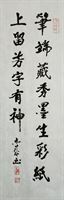 筆端藏秀墨生彩紙
上留芳字有神